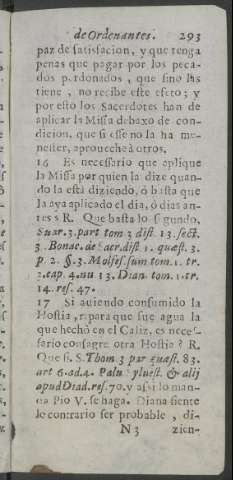 de Ordenantes. 293
paz de satisfacion, y que tenga
penas que pagar por los peca-
dos perdonados, que sino las
tiene, no recibe este efeto; y
por esto los Sacerdotes han de
aplicar la Missa debaxo de con-
dicion, que si esse no la ha me-
nester, aproueche à otros.
16 Es necessario que aplique
la Missa por quien la dize quan-
do la està diziendo, ò basta que
la aya aplicado el dia, ò dias an-
tes? R. Que basta lo segundo,
Suar. 3. part tom 3 dist. 13. sect.
3. Bonac. de Sacr. dist 1. quæst. 3.
p. 2. §. 3. Molfes. sum tom. 1. tr.
2. cap. 4. nu 13. Dian. tom. 1. tr.
14. res. 47.
17 Si auiendo consumido la
Hostia, repara que fue agua la
que hechò en el Caliz, es neces-
sario consagre otra Hostia? R.
Que si. S. Thom. 3 par quæst. 83.
art 6. ad. 4. Palu Syluest. & alij
apud Diad. res. 70. y assi lo man-
da Pio V. se haga. Diana siente
lo contrario ser probable, di-
N 3 zien-